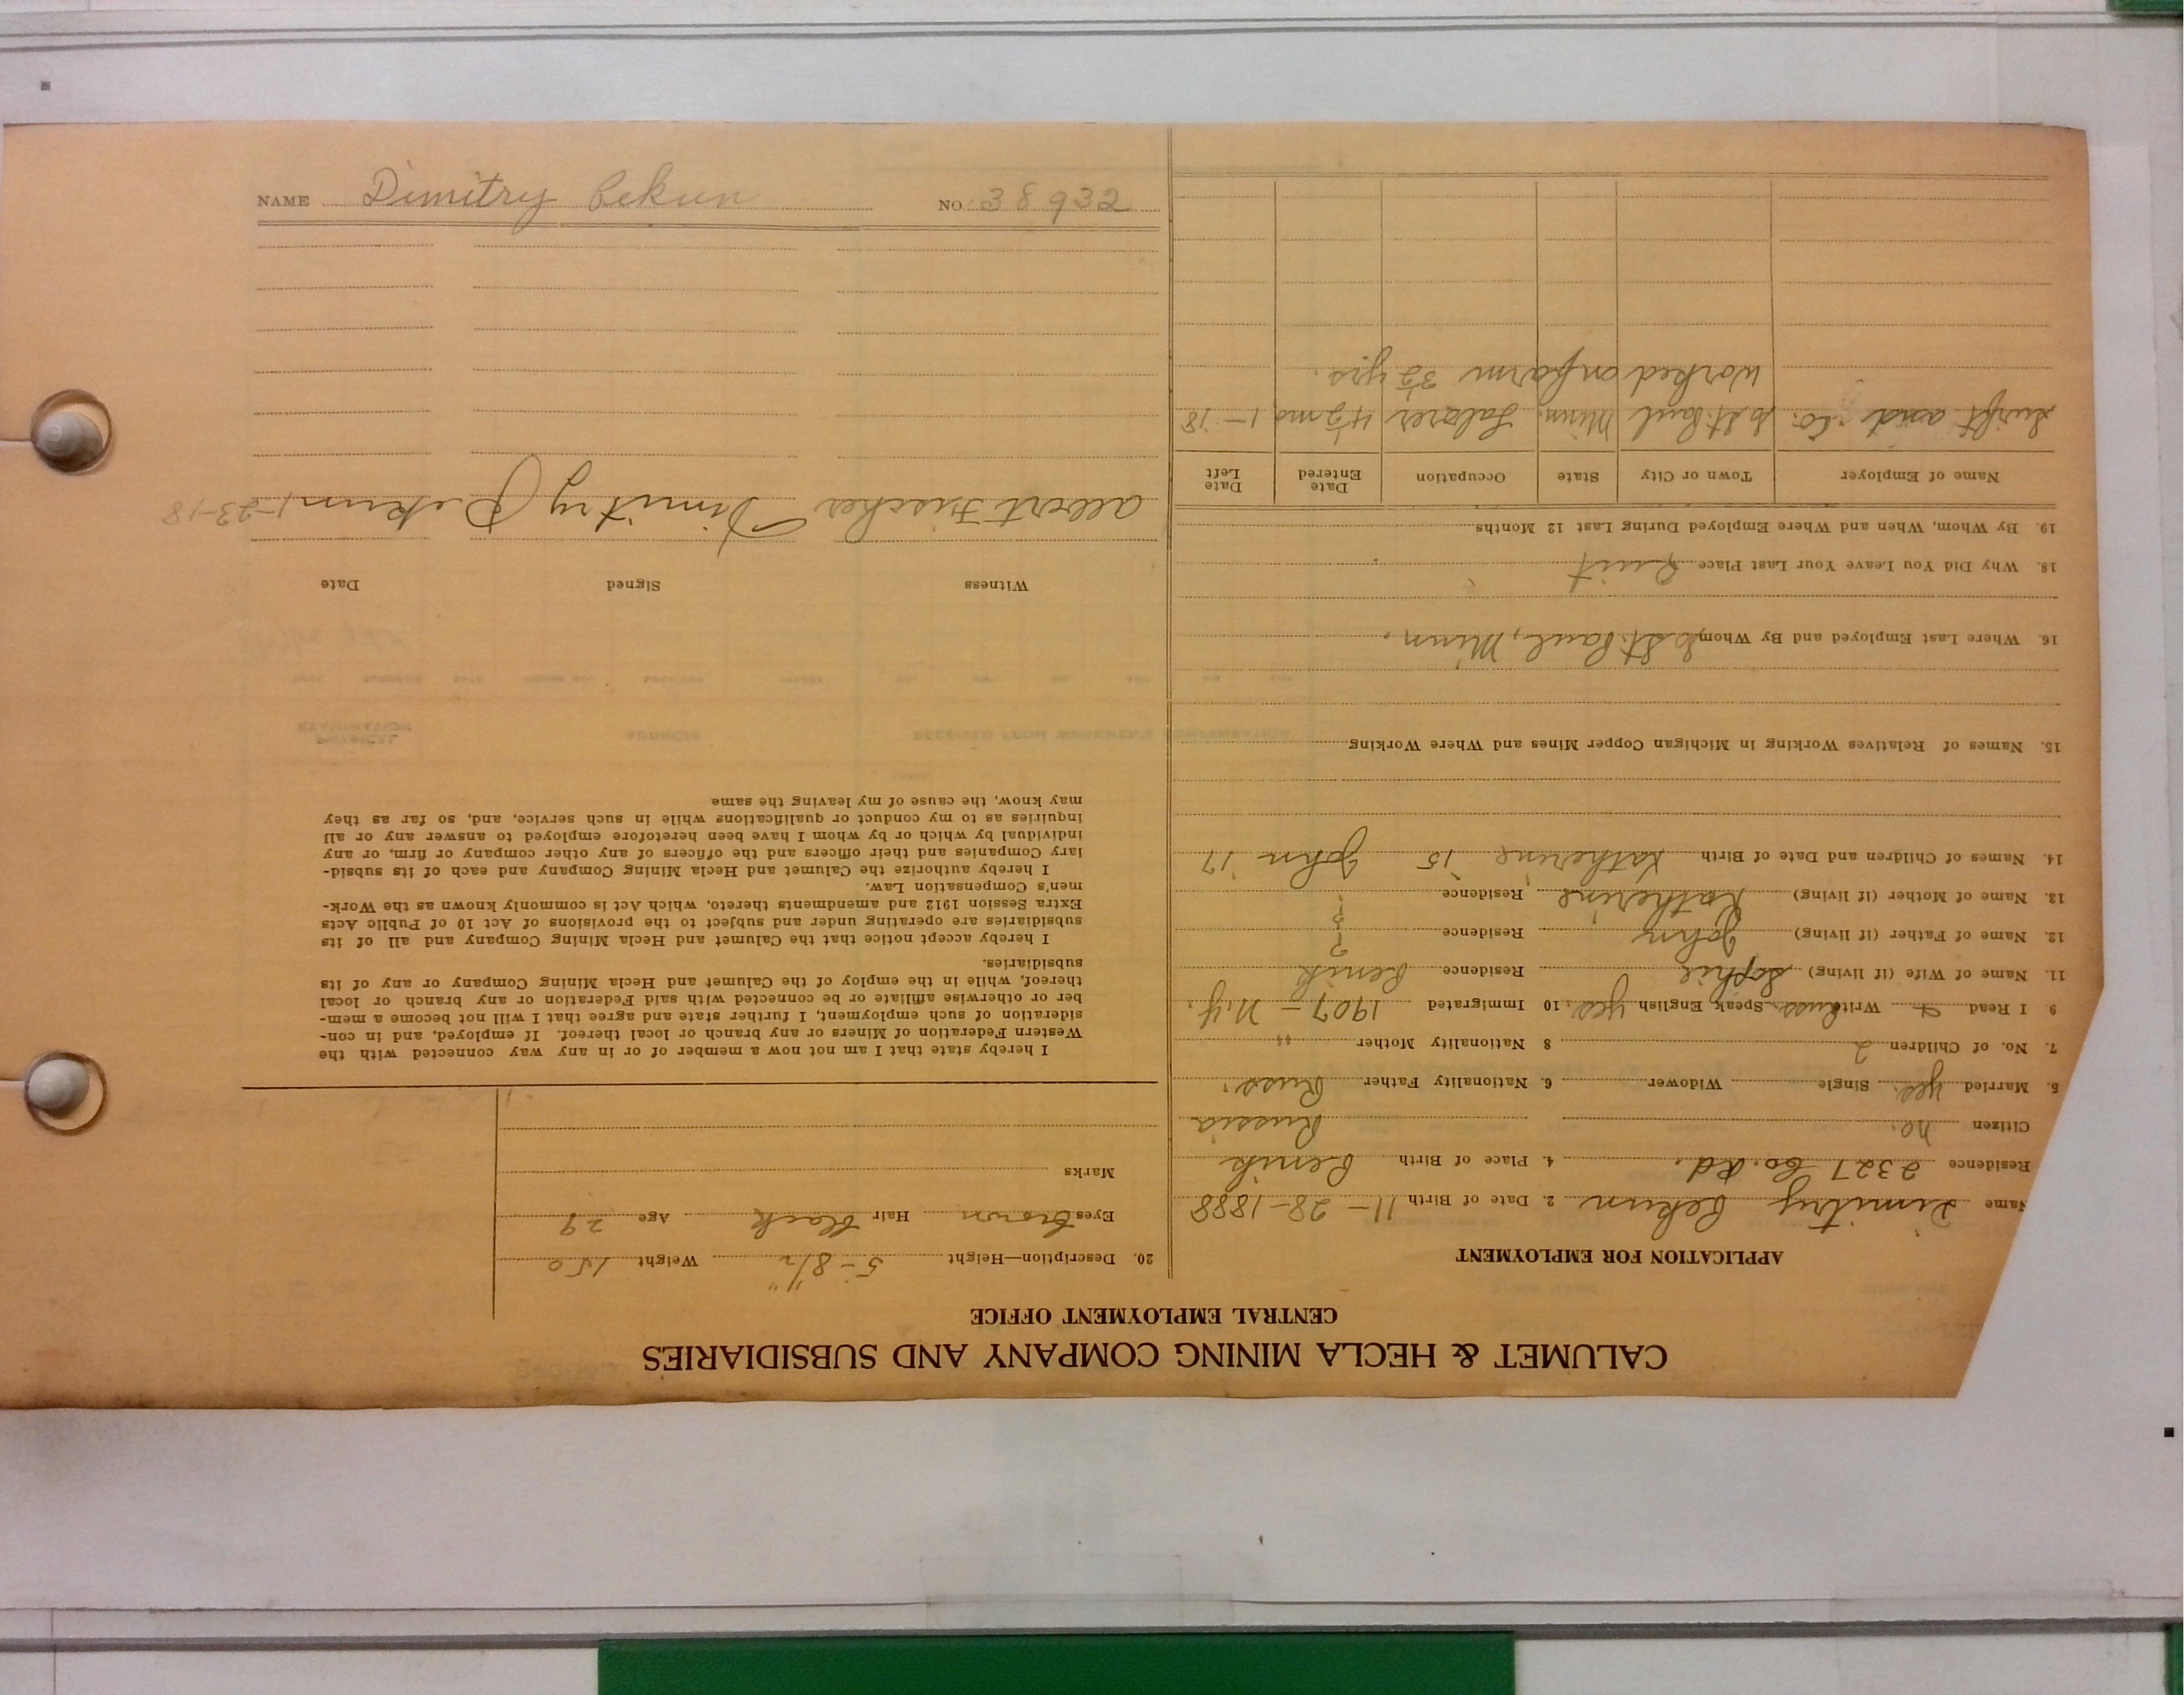 CALUMET & HECLA MINING COMPANY AND SUBSIDIARIES
CENTRAL EMPLOYMENT OFFICE
APPLICATION FOR EMPLOYMENT
Name Dimitry Pekun 2. Date of Birth 11-28-1888
Residence 2327 Co. Rd. 4. Place of Birth Penik
Citizen no. Russia
5. Married yes. Single Widower 6. Nationality Father Russ.
7. No. of Children 2 8 Nationality Mother "
9 I Read & Write Russ. Speak English yes. 10 Immigrated 1907 - N.Y.
11. Name of Wife (if living) Sophie Residence Penik
12. Name of Father (if living) John Residence ?
13. Name of Mother (if living) Katherine Residence ?
14. Names of Children and Date of Birth Katherine '15 John '17
15. Names of Relatives Working in Michigan Copper Mines and Where Working
16. Where Last Employed and By Whom So. St. Paul, Minn.
18. Why Did You Leave Your Last Place Quit
19. By Whom, When and Where Employed During Last 12 Months
Name of Employer Town or City State Occupation Date Entered Date Left
Swift and Co. So St. Paul Minn. Laborer 4½ mo. 1-18
Worked on farm 3½ yrs.
20. Description—Height 5-8½" Weight 150
Eyes Brown Hair Black Age 29
Marks
I hereby state that I am not now a member of or in any way connected with the
Western Federation of Miners or any branch or local thereof. If employed, and in con-
sideration of such employment, I further state and agree that I will not become a mem-
ber or otherwise affiliate or be connected with said Federation or any branch or local
thereof, while in the employ of the Calumet and Hecla Mining Company or any of its
subsidiaries.
I hereby accept notice that the Calumet and Hecla Mining Company and all of its
subsidiaries are operating under and subject to the provisions of Act 10 of Public Acts
Extra Session 1912 and amendments thereto, which Act is commonly known as the Work-
men's Compensation Law.
I hereby authorize the Calumet and Hecla Mining Company and each of its subsid-
iary Companies and their officers and the officers of any other company or firm, or any
individual by which or by whom I have been heretofore employed to answer any or all
inquiries as to my conduct or qualifications while in such service, and, so far as they
may know, the cause of my leaving the same
Witness Signed Date
Albert Fischer Dimitry Pekun 1-23-18
NAME Dimitry Pekun NO. 38932